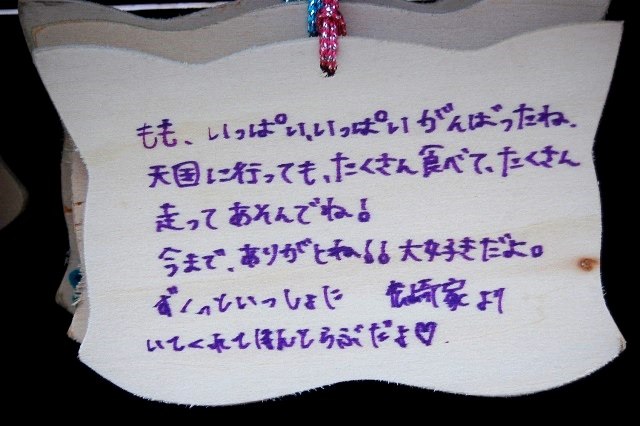 もも、いっぱい、いっぱいがんばったね、
天国に行っても、たくさん食べて、たくさん
走ってあそんでね!
今まで、ありがとね!!大好きだよ。
ず〜っといっしょに 崎家より
いてくれてほんとうだよ♡